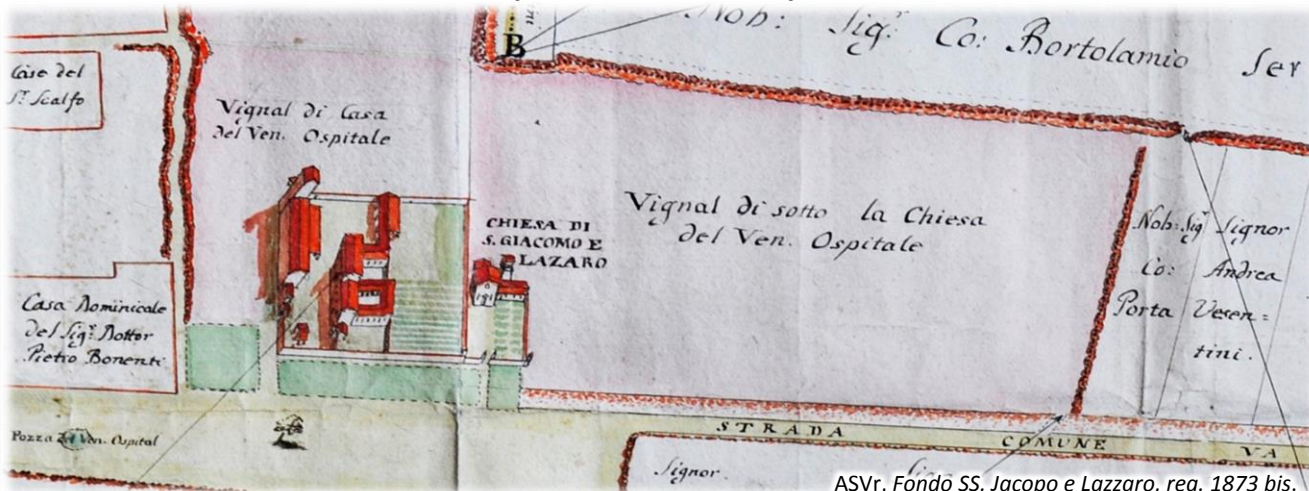 Nob: Sig.r Co: Bortolamio Ser
B
Case del
S.r Scalfo
Vignal di Casa
del Ven. Ospitale
CHIESA DI
S. GIACOMO E
LAZARO
Vignal di sotto la Chiesa
del Ven. Ospitale
Nob: Sig.r
Co:
Porta
Signor
Andrea
Vesen=
tini.
Casa Dominicale
del Sig.r Dottor
Pietro Bonenti
Pozza del Ven. Ospital
STRADA COMUNE VA
Signor
ASVr, Fondo SS. Jacopo e Lazzaro, reg. 1873 bis.